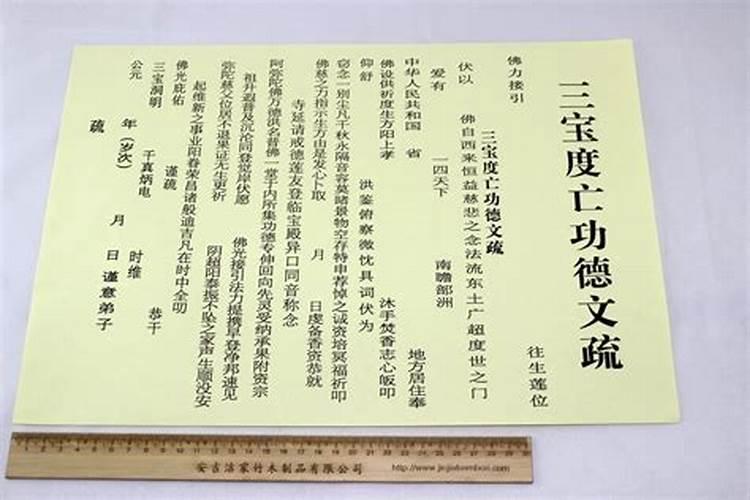 三宝度亡功德文疏
佛力接引 往生莲位
三宝度亡功德文疏
伏以 佛自西来恒益慈悲之念法流东土广超度世之门
爰有 一四天下 南瞻部洲
中华人民共和国 省 地方居住奉
佛设供祈度生方阳上孝 沐手焚香志心皈叩
仰舒 洪鉴俯察微忱具词伏为
窃念一别尘凡千秋永隔音容莫睹景物空存特申荐悼之诚资培冥福祈叩
佛慈之力指示生方由是发心卜取 月 日虔备香资恭就
寺延请戒德莲友登临宝殿异口同音称念
阿弥陀佛万德洪名普佛一堂于内所集功德专伸回向先灵受纳承果附资宗
祖升遐普及沉沦同登觉岸伏愿 佛光接引法力提携早登净邦速见
弥陀慈父位居不退果证无生更祈 阴超阳泰振不坠之家声生顺没安
起维新之事业阳眷荣昌诸般迪吉凡在时中全叨
佛光庇佑 谨疏
三宝洞明 千真炳电 恭干
公元 年（岁次） 月 日 时维 谨意弟子
疏
安吉洁家竹木制品有限公司 http://www.jiejiabamboo.com